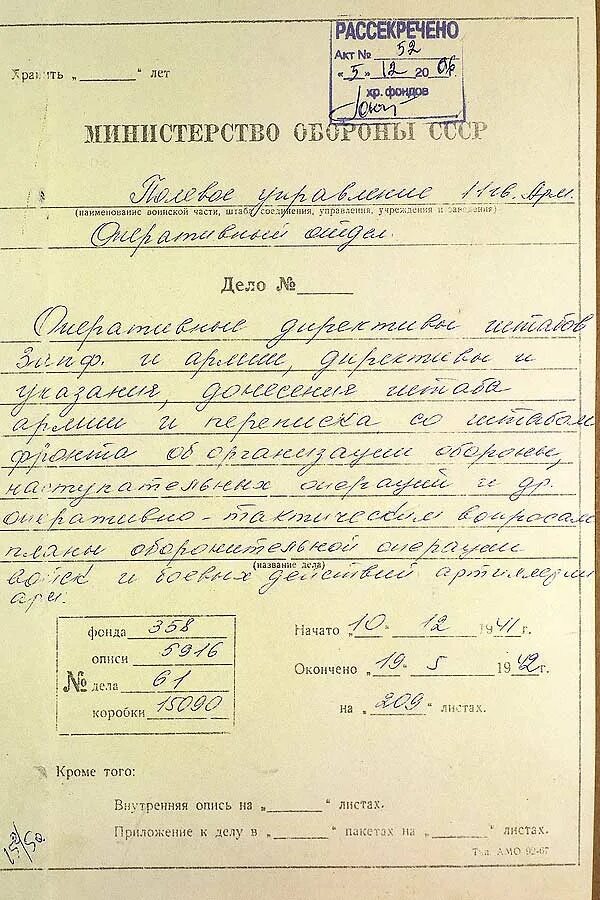 РАССЕКРЕЧЕНО
Акт № 52
«5» 12 2006г.
хр. фондов
Хранить „______“ лет
МИНИСТЕРСТВО ОБОРОНЫ СССР
Полевое управление 11 гв. Арм.
(наименование воинской части, штаба соединения, управления, учреждения и заведения)
Оперативный отдел.
Дело №______
Оперативные директивы штабов
Запф. и армии, директивы и
указания, донесения штаба
армии и переписка со штабом
фронта об организации обороны,
наступательных операций и др.
оперативно-тактическим вопросам
планы оборонительной операции
(название дела)
войск и боевых действий артиллерии
арм.
фонда 358
описи 5916
№ дела 61
коробки 15090
Начато „10“ 12 1941 г.
Окончено „19“ 5 1942 г.
на „209“ листах.
Кроме того:
Внутренняя опись на „______“ листах.
Приложение к делу в „______“ пакетах на „______“ листах.
Тип. АМО 92-67